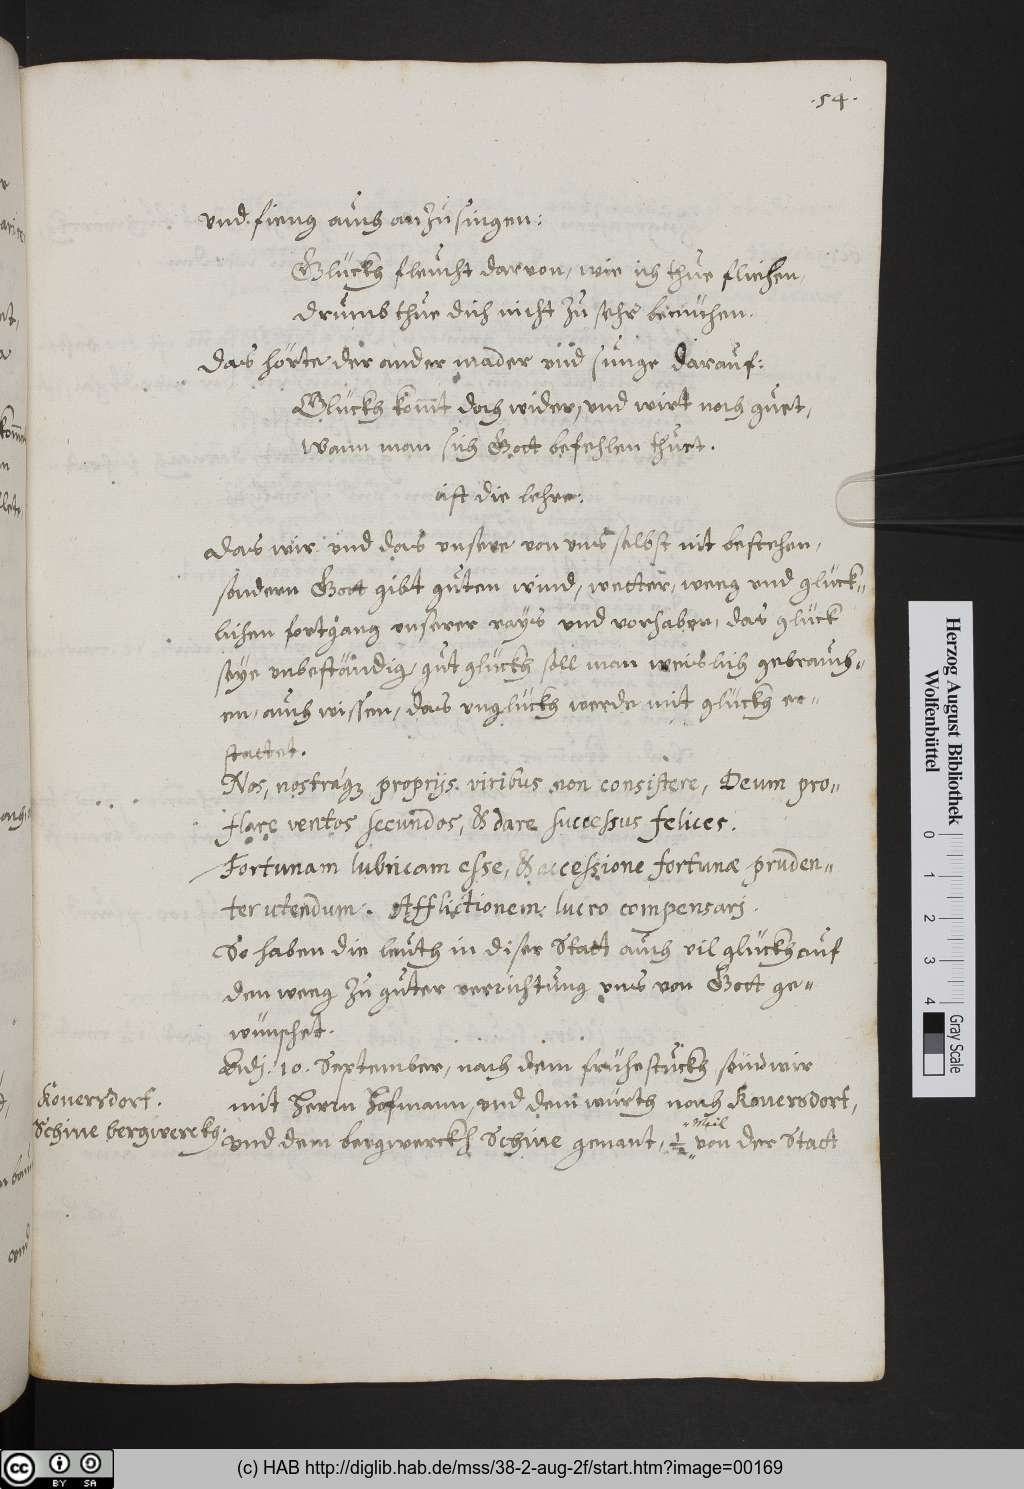 .54.
vnd fieng auch an zu singen:
Glückh fleucht darvon, wie ich thue fliehen,
drumb thue dich nicht zu sehr bemühen.
Das hörte der ander mader vnd sunge darauf:
Glückh kom̄t doch wider, vnd wirt noch guet,
Wann man sich Gott befehlen thuet.
ist die lehre:
das wir vnd das vnsere von vns selbst nit bestehen,
sondern Gott gibt guten wind, wetter, weeg vnd glück-
lichen fortgang vnserer rays vnd vorhaben, das glück
seye vnbeständig, gut glückh soll man weislich gebrauch-
en, auch wissen, das vnglückh werde mit glückh er-
stattet.
Nos, nostraq; proprijs viribus non consistere, Deum pro-
flare ventos secundos, & dare successus felices.
Fortunam lubricam esse, & accessione fortunæ pruden-
ter utendum. Afflictionem lucro compensari.
So haben die leuth in diser Statt auch vil glückh auf
den weeg zu guter verrichtung vns von Gott ge-
wünschet.
Adj. 10. September, nach dem frühestückh seind wir
mit Herrn Hofmann, vnd dem würth nach Kouersdorf,
Kouersdorf.
Schine bergwerckh.
vnd dem bergwerckh Schine genant, ½ Meil von der Statt
Herzog August Bibliothek
Wolfenbüttel
0 1 2 3 4
Gray Scale
cc BY SA
(c) HAB http://diglib.hab.de/mss/38-2-aug-2f/start.htm?image=00169